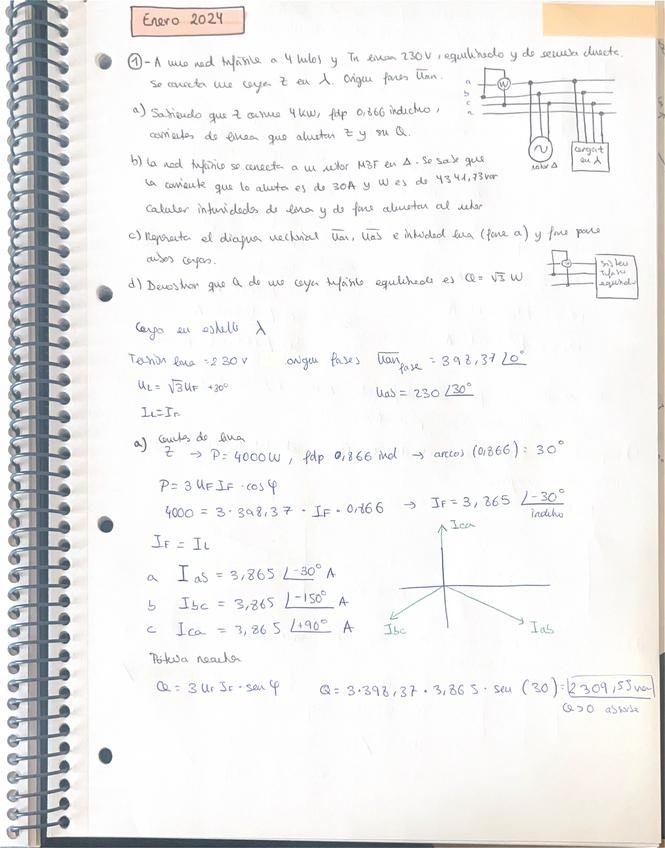 Enero 2024
① - A una red trifásica a 4 hilos y Tn línea 230V, equilibrado y de secuencia directa.
Se conecta una carga Z en λ. Origen fases Uan.
a) Sabiendo que Z consume 4kW, fdp 0,866 inductivo,
corrientes de línea que absorben Z y su Q.
b) La red trifásica se conecta a un motor M3F en Δ. Se sabe que
la corriente que lo absorbe es de 30A y W es de 4341,73 var
Calcular intensidades de línea y de fase absorben al motor
c) Representa el diagrama vectorial Uan, Uab e intensidad línea (fase a) y fase para
ambos cargas.
d) Demostrar que Q de una carga trifásica equilibrada es Q = √3 W
a
b
c
n
W
motor Δ
carga Z
en λ
sistema
trifásico
equilibrado
Carga en estrella λ
Tensión línea = 230 V origen fases Uan fase = 398,37 ∠0°
UL = √3 UF +30° Uab = 230 ∠30°
IL = IF
a) Corrientes de línea
Z → P = 4000W, fdp 0,866 ind → arccos (0,866) = 30°
P = 3 UF IF · cos φ
4000 = 3 · 398,37 · IF · 0,866 → IF = 3,865 ∠-30°
inductivo
IF = IL
a Iab = 3,865 ∠-30° A
b Ibc = 3,865 ∠-150° A
c Ica = 3,865 ∠+90° A
Ica
Ibc
Iab
Potencia reactiva
Q = 3 UF IF · sen φ Q = 3 · 398,37 · 3,865 · sen (30) = 2309,55 var
Q>0 absorbe